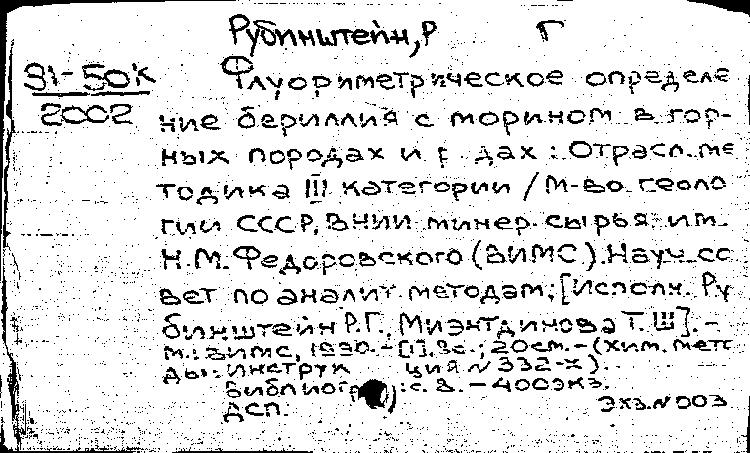 Рубинштейн, Р Г
31-50К
2002
Флуориметрическое определе
ние бериллия с морином в гор-
ных породах и дах: Отрасл. ме
тодика III категории / М-во геоло
гии СССР, ВНИИ минер. сырья им.
Н.М. Федоровского (ВИМС). Науч. со
вет по аналит. методам; [Исполн. Ру
бинштейн Р.Г., Миэнтдинова Т.Ш]. –
М.: ВИМС, 1990. – [1], с.; 20см. – (Хим. мето
ды: Инструк ция N 332-х).
Библиогр : с. 8. – 400 экз.
ДСП. Экз. N 003